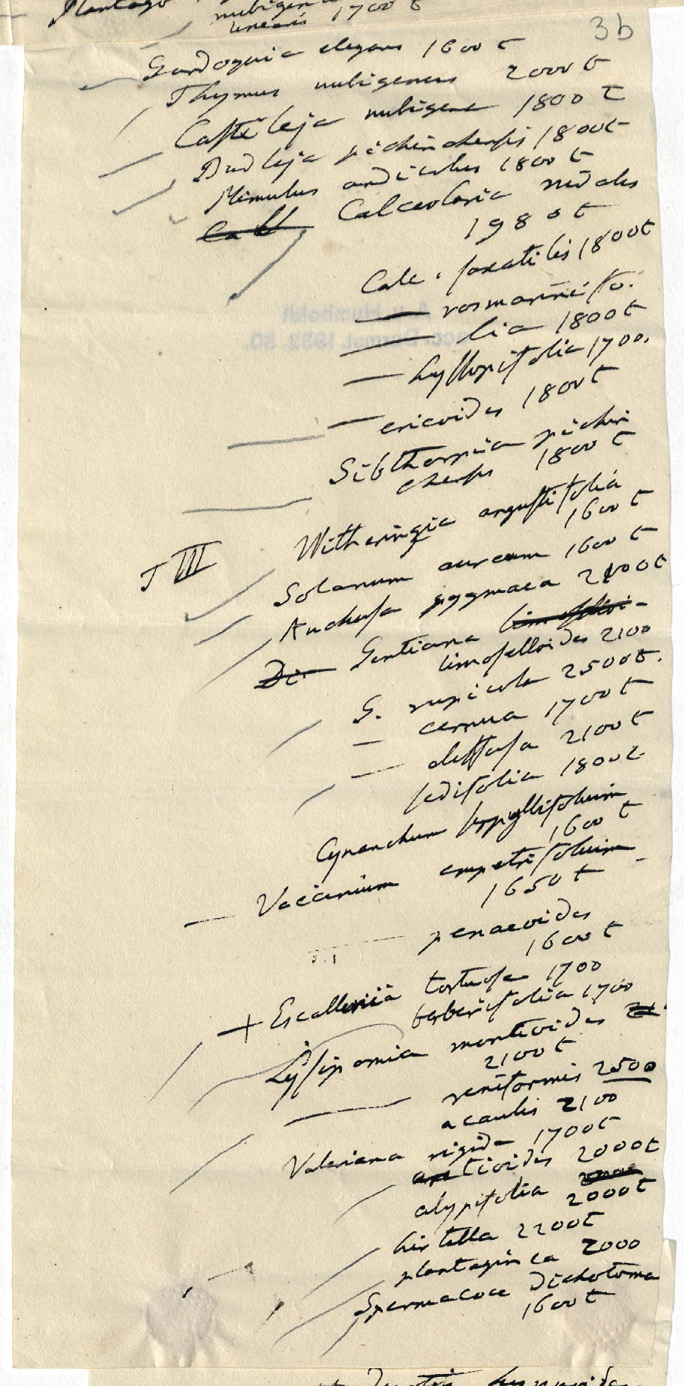 Plantago nubigena
linearis 1700 t
3b
Gardoquia elegans 1600 t
Thymus nubigenus 2000 t
Castilleja nubigena 1800 t
Budleja pichinchensis 1800t
Mimulus andicolus 1800 t
Calceolaria
1980 t
Calc. saxatilis 1800t
— rosmarinifo.
lia 1800t
— hyssopifolia 1700.
— ericoides 1800t
Sibthorpia pichin
chensis 1800 t
T III
Witheringia angustifolia
1600 t
Solanum aureum 1600 t
Anchusa pygmaea 2100t
Gentiana
limoselloides 2100
G. rupicola 2500t.
— cernua 1700t
— diffusa 2100t
sedifolia 1800t
Cynanchum serpyllifolium
1600 t
Vaccinium empetrifolium
1650 t
penaeoides
1600 t
+ Escallonia tortuosa 1700
berberifolia 1700
Lysipomia montioides
2100t
— reniformis 2500
acaulis 2100
Valeriana rigida 1700t
aretioides 2000t
alypifolia
2000t
hirtella 2200t
plantaginea 2000
Spermacoce dichotoma
1600t